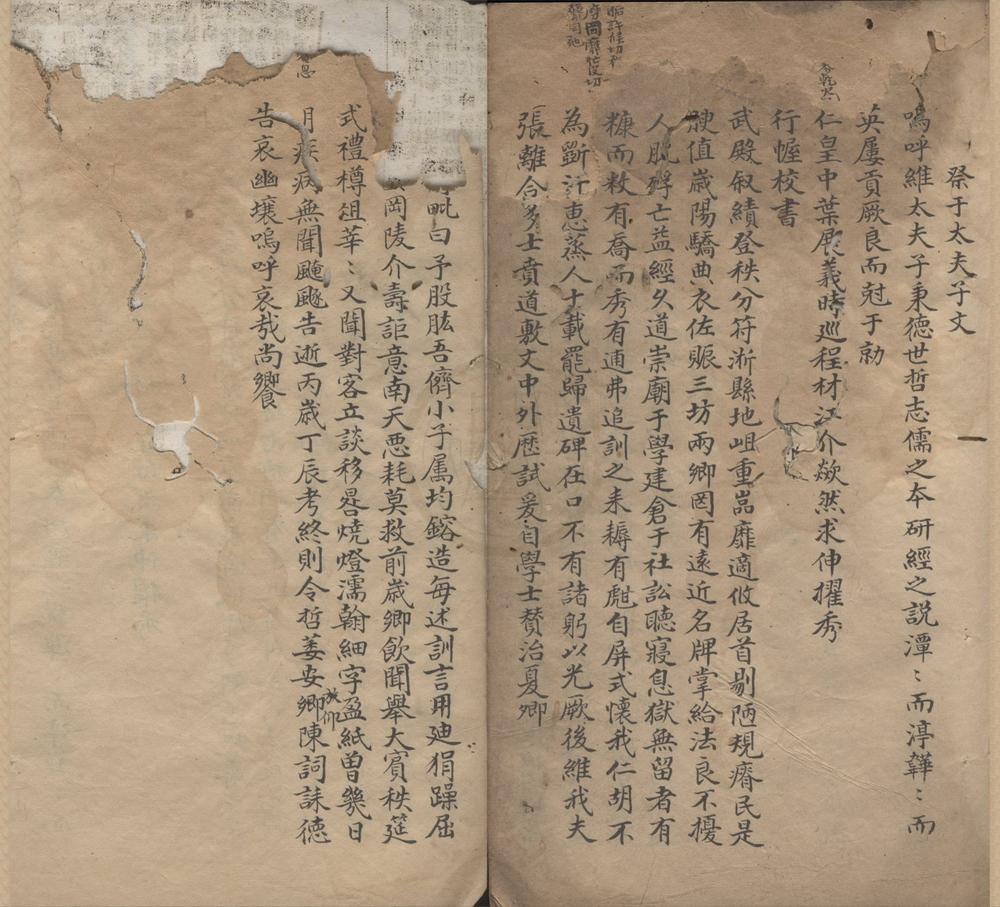 祭于太夫子文
嗚呼維太夫子秉德世哲志儒之本研經之説潭〻而渟韡〻而
英屢貢厥良而尅于勍
仁皇中葉展義時巡程材江介歘然求伸擢秀
行幄校書
武殿叙績登秩分符淅縣地岨重嵓靡適攸居首剔陋規瘠民是
腴值歲陽驕典衣佐賑三坊兩鄉罔有遠近名牌掌給法良不擾
人脫殍亡益經久道崇廟于學建倉于社訟聽寢息獄無留者有
糠而敉有喬而秀有逋弗追訓之耒耨有尨自屏式懷我仁胡不
為斷汙惠蒸人十載罷歸遺碑在口不有諸躬以光厥後維我夫
張離合多士賁道敷文中外歷試爰自學士贊治夏卿
毗曰予股肱吾儕小子属均鎔造每述訓言用迪狷躁屈
岡陵介壽詎意南天惡耗莫救前歲鄉飲聞舉大賓秩筵
式禮樽俎莘〻又聞對客立談移晷燒燈濡翰細字盈紙曾幾日
月疾病無聞颸飈告逝丙歲丁辰考終則令哲萎安仰陳詞誄德
告哀幽壤嗚呼哀哉尚饗